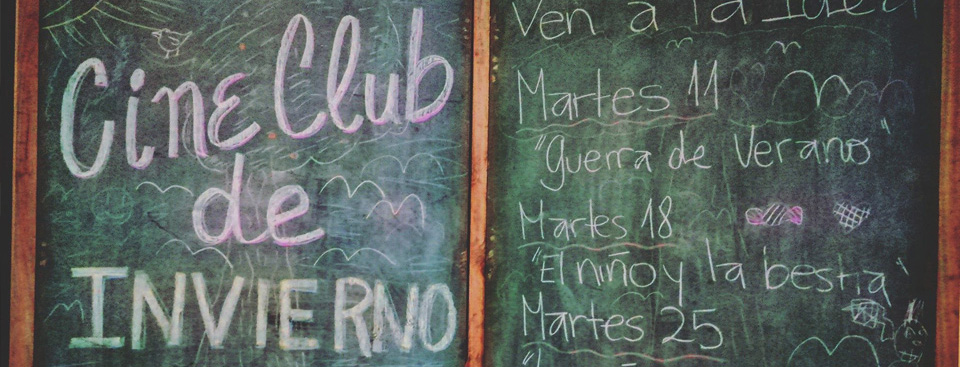 Cine Club
de
INVIERNO
Ven a la
Martes 11
"Guerra de Verano"
Martes 18
"El niño y la bestia"
Martes 25